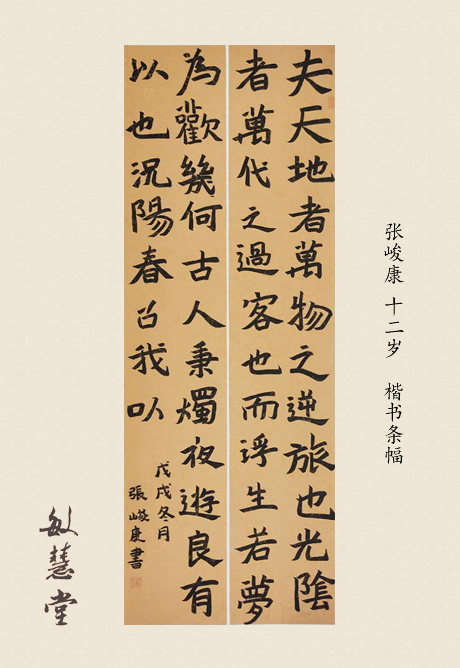 张峻康 十二岁 楷书条幅
夫天地者萬物之逆旅也光陰
者萬代之過客也而浮生若夢
為歡幾何古人秉燭夜遊良有
以也況陽春召我以
戊戌冬月
張峻康書
敏慧堂